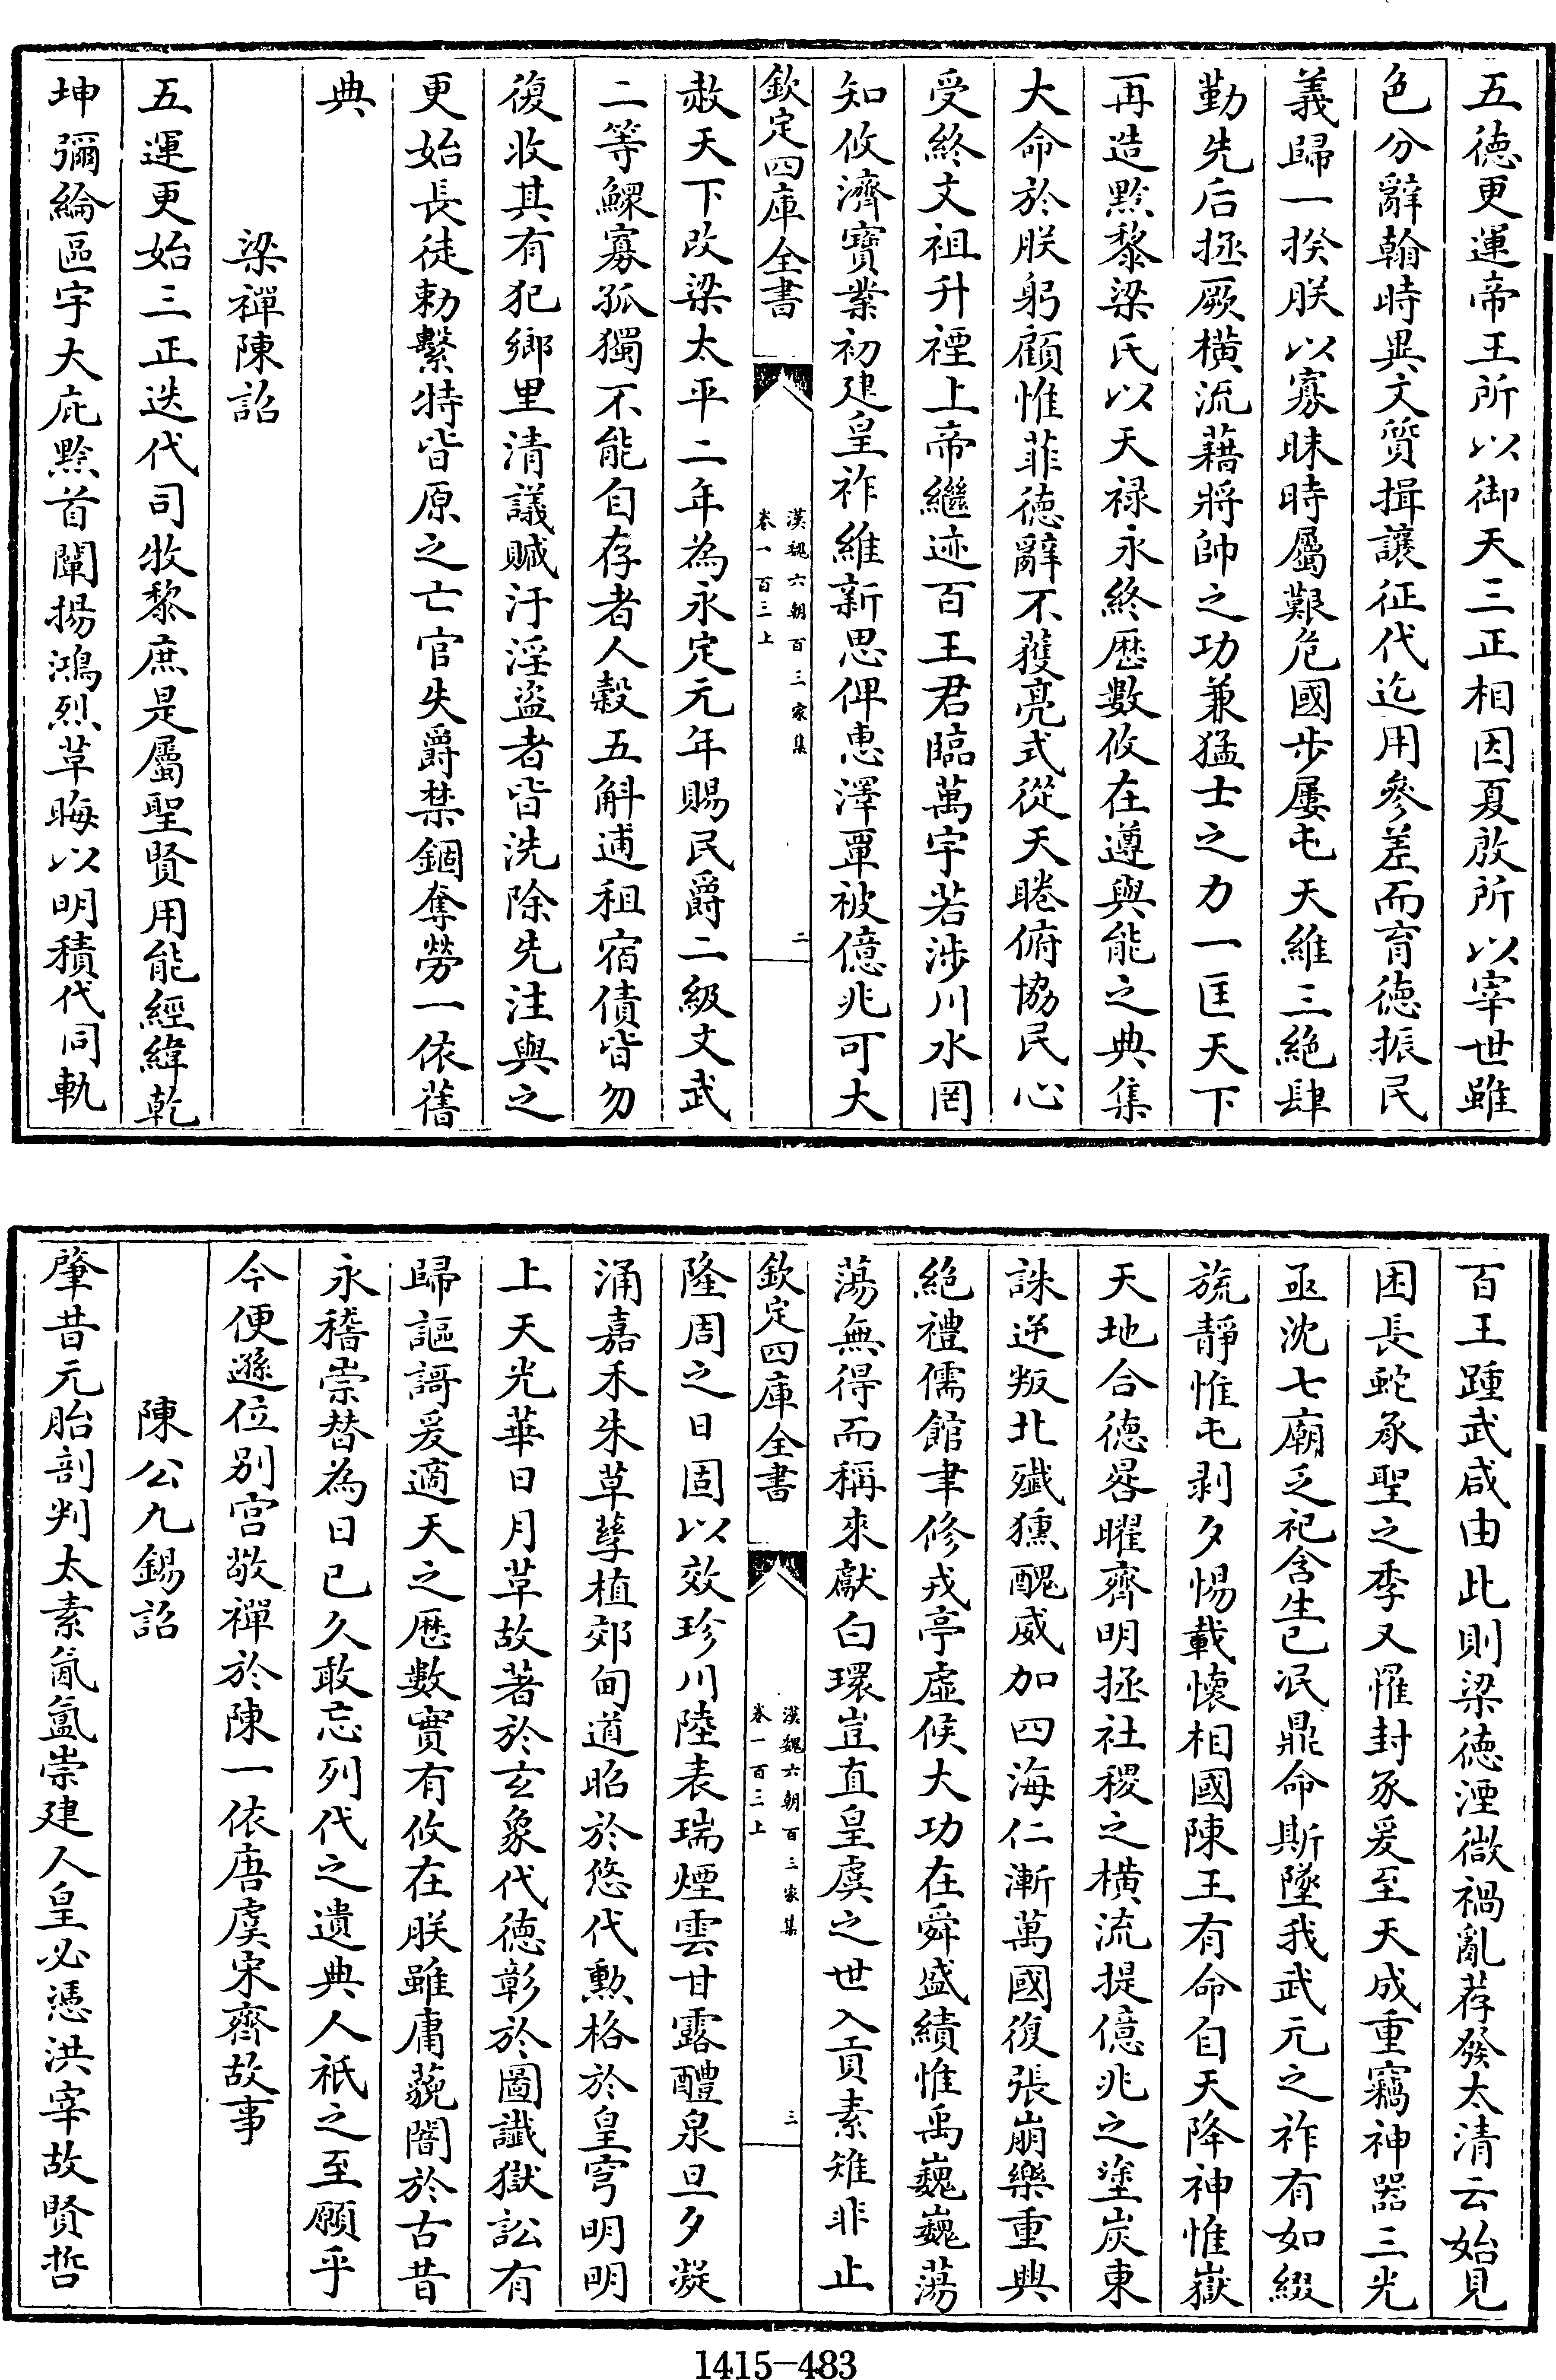 五徳更運帝王所以御天三正相因夏殷所以宰世雖
色分辭翰時異文質揖讓征代迄用參差而育徳振民
義歸一揆朕以寡昧時屬艱危國步屢屯天維三絶肆
勤先后拯厥横流藉將帥之功兼猛士之力一匡天下
再造黔黎梁氏以天禄永終厯數攸在遵與能之典集
大命於朕躬顧惟菲徳辭不獲亮式從天睠俯協民心
受終文祖升禋上帝繼迹百王君臨萬宇若涉川水罔
知攸濟寳業初建皇祚維新思俾恵澤覃被億兆可大
欽定四庫全書
漢魏六朝百三家集
卷一百三上
二
赦天下改梁太平二年為永定元年賜民爵二級文武
二等鰥寡孤獨不能自存者人穀五斛逋租宿債皆勿
復收其有犯鄉里清議贓汙淫盗者皆洗除先注與之
更始長徒勅繫特皆原之亡官失爵禁錮奪勞一依舊
典
梁禪陳詔
五運更始三正迭代司牧黎庶是屬聖賢用能經緯乾
坤彌綸區宇大庇黔首闡揚鴻烈草晦以明積代同軌
百王踵武咸由此則梁徳湮微禍亂荐發太清云始見
困長蛇承聖之季又罹封豕爰至天成重竊神器三光
亟沈七廟乏祀含生已泯鼎命斯墜我武元之祚有如綴
旒靜惟屯剥夕惕載懐相國陳王有命自天降神惟嶽
天地合徳晷曜齊明拯社稷之横流提億兆之塗炭東
誅逆叛北殲獯醜威加四海仁漸萬國復張崩樂重興
絶禮儒館聿修戎亭虚候大功在舜盛績惟禹巍巍蕩
蕩無得而稱來獻白環豈直皇虞之世入貢素雉非止
欽定四庫全書
漢魏六朝百三家集
卷一百三上
三
隆周之日固以效珍川陸表瑞煙雲甘露醴泉旦夕凝
涌嘉禾朱草孳植郊甸道昭於悠代勲格於皇穹明明
上天光華日月草故著於玄象代徳彰於圖讖獄訟有
歸謳謌爰適天之厯數實有攸在朕雖庸藐闇於古昔
永稽崇替為日已久敢忘列代之遺典人祇之至願乎
今便遜位别宫敬禪於陳一依唐虞宋齊故事
陳公九錫詔
肇昔元胎剖判太素氤氲崇建人皇必憑洪宰故賢哲
1415-483